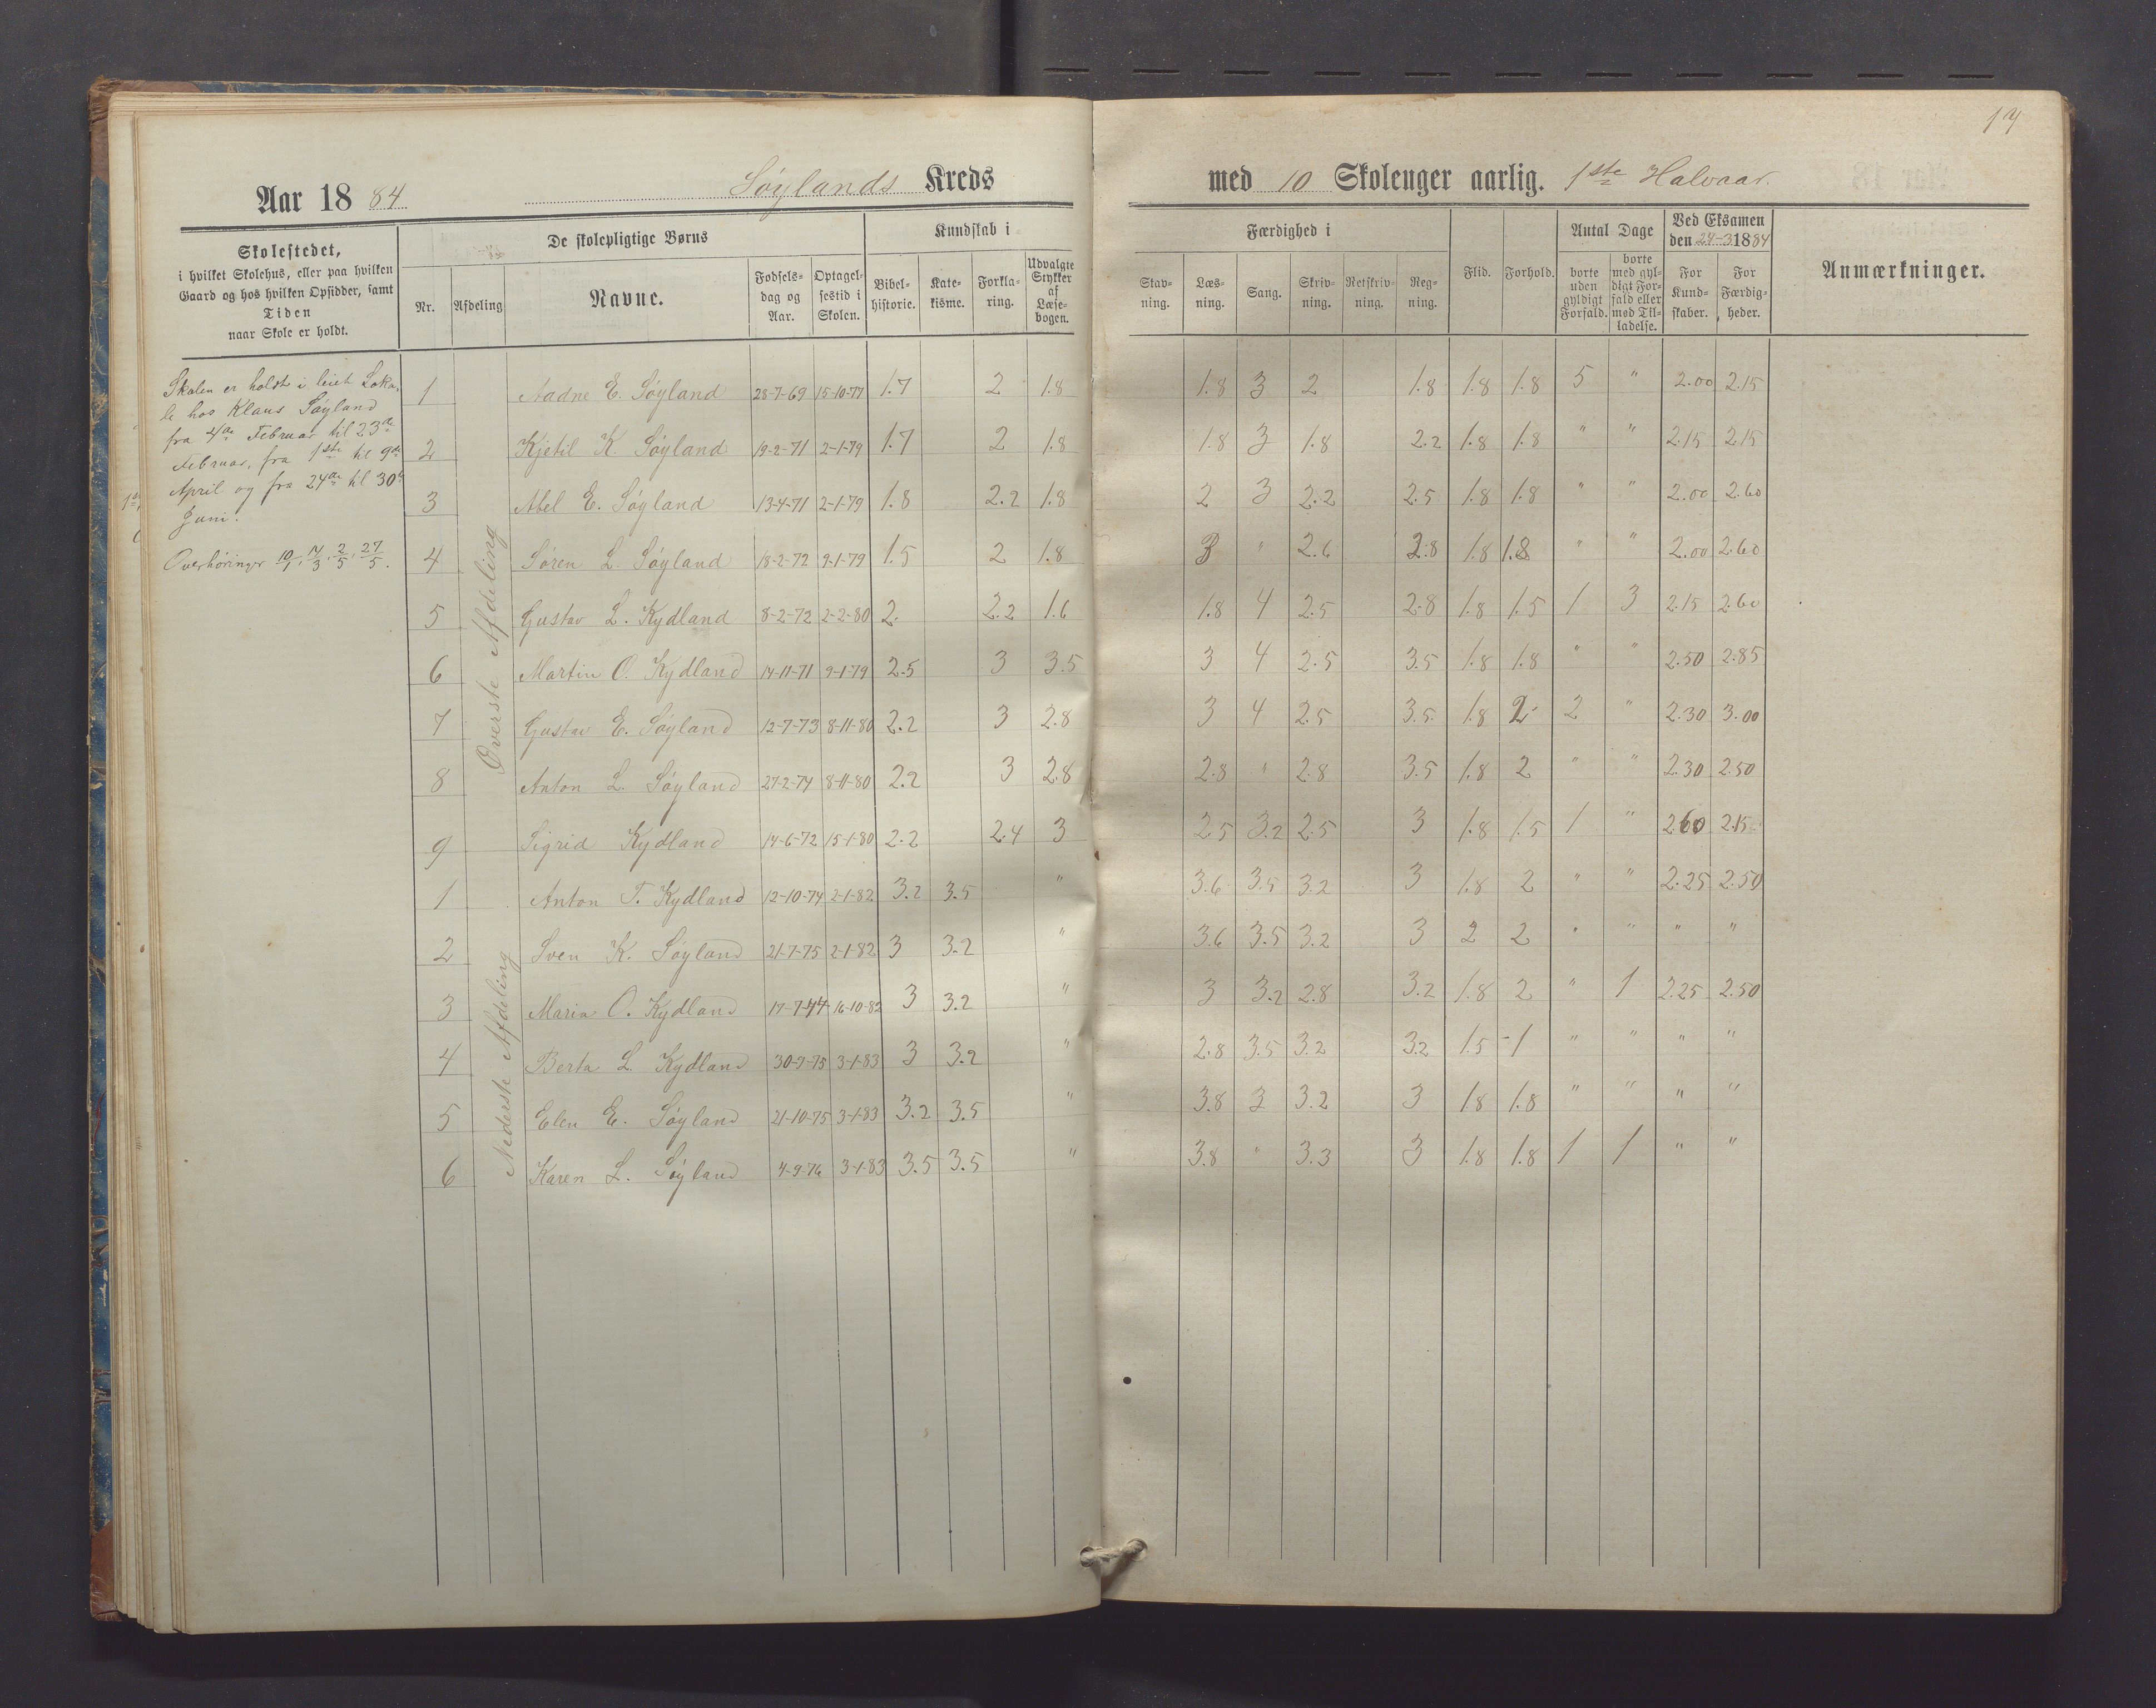 14
Aar 1884 Søylands Kreds med 10 Skoleuger aarlig. 1ste Halvaar.
Skolestedet,
i hvilket Skolehus, eller paa hvilken
Gaard og hos hvilken Opsidder, samt
Tiden
naar Skole er holdt.
De skolepligtige Børns
Nr. Afdeling Navne. Fødselsdag og Aar. Optagelsestid i Skolen.
Kundskab i
Bibelhistorie. Katekisme. Forklaring. Udvalgte Stykker af Læsebogen.
Færdighed i
Stavning. Læsning. Sang. Skrivning. Retskrivning. Regning.
Flid. Forhold.
Antal Dage
borte uden gyldigt Forfald. borte med gyldigt Forfald eller med Tilladelse.
Ved Eksamen
den 24-3 1884
For Kundskaber. For Færdigheder.
Anmærkninger.
Skolen er holdt i leiet Loka-
le hos Klaus Søyland
fra 4de Februar til 23de
Februar, fra 1ste til 9de
April og fra 24de til 30te
Juni.
Overhøringer 10/1, 14/3, 2/5, 27/5.
Øverste Afdeling
1 Aadne E. Søyland 28-7-69 15-10-77 1.7 2 1.8 1.8 3 2 1.8 1.8 1.8 5 " 2.00 2.15
2 Kjetil K. Søyland 19-2-71 2-1-79 1.7 2 1.8 1.8 3 1.8 2.2 1.8 1.8 " " 2.15 2.15
3 Abel E. Søyland 13-4-71 2-1-79 1.8 2.2 1.8 2 3 2.2 2.5 1.8 1.8 " " 2.00 2.60
4 Søren L. Søyland 18-2-72 9-1-79 1.5 2 1.8 3 " 2.6 2.8 1.8 1.8 " " 2.00 2.60
5 Gustav L. Kydland 8-2-72 2-2-80 2. 2.2 1.6 1.8 4 2.5 2.8 1.8 1.5 1 3 2.15 2.60
6 Martin O. Kydland 14-11-71 9-1-79 2.5 3 3.5 3 4 2.5 3.5 1.8 1.8 " " 2.50 2.85
7 Gustav E. Søyland 12-7-73 8-11-80 2.2 3 2.8 3 4 2.5 3.5 1.8 2 2 " 2.30 3.00
8 Anton L. Søyland 27-2-74 8-11-80 2.2 3 2.8 2.8 " 2.8 3.5 1.8 2 " " 2.30 2.50
9 Sigrid Kydland 14-6-72 15-1-80 2.2 2.4 3 2.5 3.2 2.5 3 1.8 1.5 1 " 2.60 2.15
Nederste Afdeling
1 Anton T. Kydland 12-10-74 2-1-82 3.2 3.5 " 3.6 3.5 3.2 3 1.8 2 " " 2.25 2.50
2 Sven K. Søyland 21-7-75 2-1-82 3 3.2 " 3.6 3.5 3.2 3 2 2 " " " "
3 Maria O. Kydland 17-7-74 16-10-82 3 3.2 " 3 3.2 2.8 3.2 1.8 2 " 1 2.25 2.50
4 Berta L. Kydland 30-9-75 3-1-83 3 3.2 " 2.8 3.5 3.2 3.2 1.5 1 " " " "
5 Elen E. Søyland 21-10-75 3-1-83 3.2 3.5 " 3.8 3 3.2 3 1.8 1.8 " " " "
6 Karen L. Søyland 4-9-76 3-1-83 3.5 3.5 " 3.8 " 3.3 3 1.8 1.8 1 1 " "